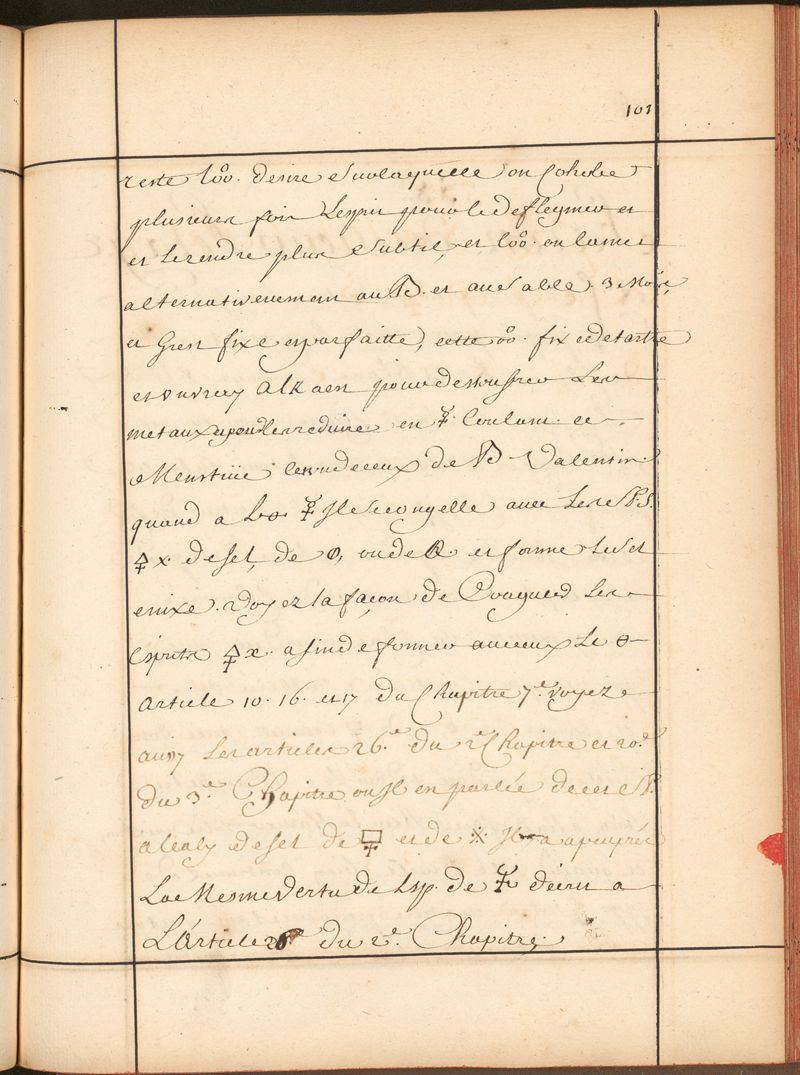 103
reste l'oo. desire sur laquelle on Cohobe
plusieurs fois Lesprit pour le deflegmer et
et Le rendre plus subtil, et loo. on la met
alternativement au B. et au sable 3 Mois,
et Gren fixe en parfaitte, cette oo. fixe de tartre
est un vray Alkaest pour dessoufrer Les
metaux et pour Les reduire en ☿ Coulant. ce
Menstrüe de B. Valentin
quand a L ☿ Il se congelle avec Les SP.S.
🜍 x. de sel, de ou de et forme Le sel
enixe. Voyez la façon de Les
Esprits 🜍 x. afin de former avec eux Le
Article 10. 16. et 17 du Chapitre 7.e Voyez
aussy Les articles 26.e du 2.e Chapitre et 20.e
du 3.e Chapitre ou Il en parlée de ces SP.
alcaly de sel de et de ※ Il a a peu prés
La Mesme Vertu de Lsp. de ☿ décrit a
L'Article 26.e du 2.e Chapitre.